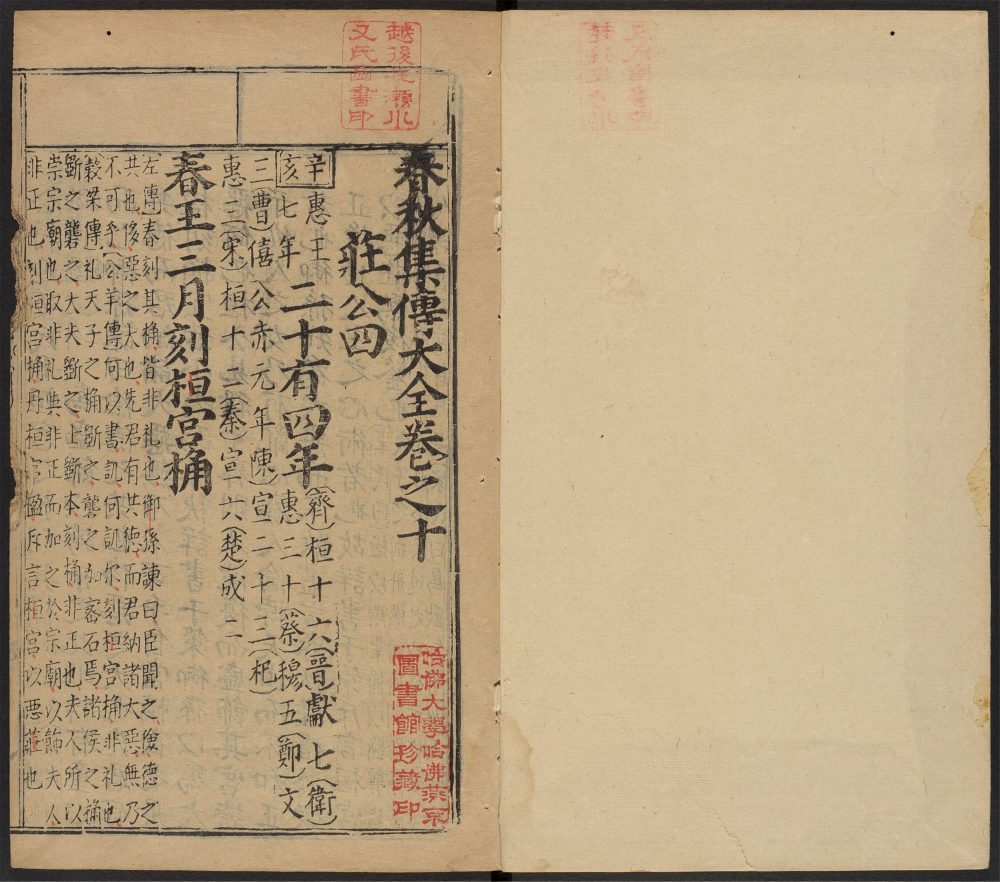 春秋集傳大全卷之十
莊公四
辛亥
惠王七年
二十有四年
齊桓十六晉獻七衛惠三十蔡穆五鄭文三曹僖公赤元年陳宣二十三杞惠三宋桓十二秦宣六楚成二
春王三月刻桓宮桷
左傳春刻其桷皆非禮也御孫諫曰臣聞之儉德之
共也侈惡之大也先君有共德而君納諸大惡無乃
不可乎公羊傳何以書譏何譏尔刻桓宮桷非礼也
穀梁傳礼天子之桷斲之礱之加密石焉諸侯之桷
斲之礱之大夫斲之士斲本刻桷非正也夫人所以
崇宗廟也取非礼與非正而加之於宗廟以飾夫人
非正也刻桓宮桷丹桓宮楹斥言桓宮以惡莊也
哈佛大學哈佛燕京
圖書館珍藏印
氏圖書印